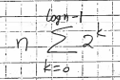 n \sum_{k=0}^{\log n - 1} 2^k